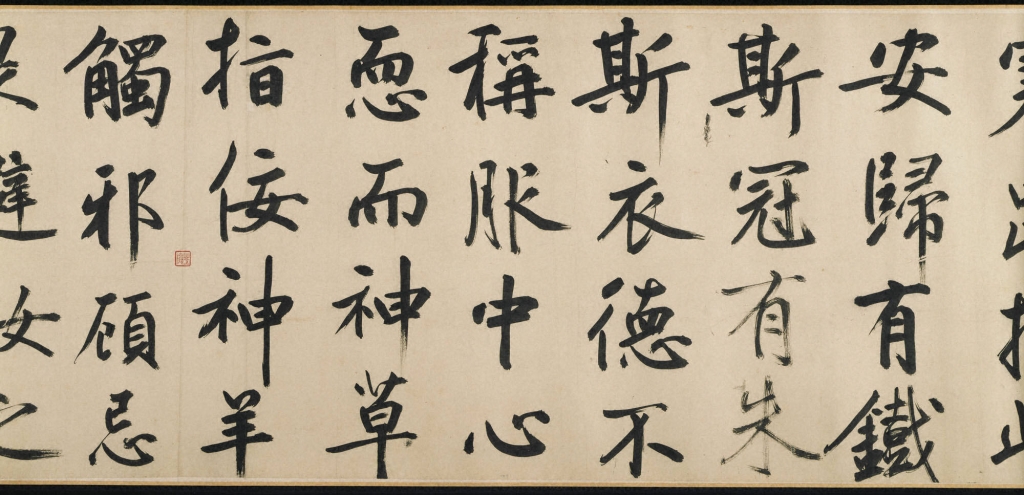 安歸有鐵
斯冠有朱
斯衣德不
稱服中心
恧而神草
指佞神羊
觸邪頋忌